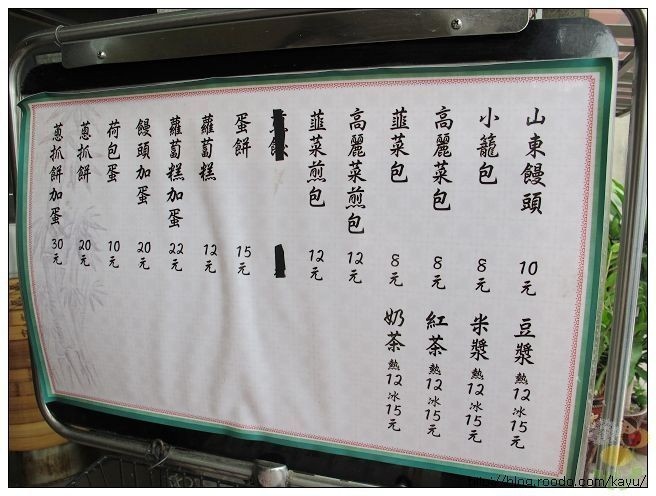 山東饅頭 10元
小籠包 8元
高麗菜包 8元
韮菜包 8元
高麗菜煎包 12元
韮菜煎包 12元
蛋餅 15元
蘿蔔糕 12元
蘿蔔糕加蛋 22元
饅頭加蛋 20元
荷包蛋 10元
蔥抓餅 20元
蔥抓餅加蛋 30元
豆漿 熱12 冰15元
米漿 熱12 冰15元
紅茶 熱12 冰15元
奶茶 熱12 冰15元
http://blog.roodo.com/kayu/